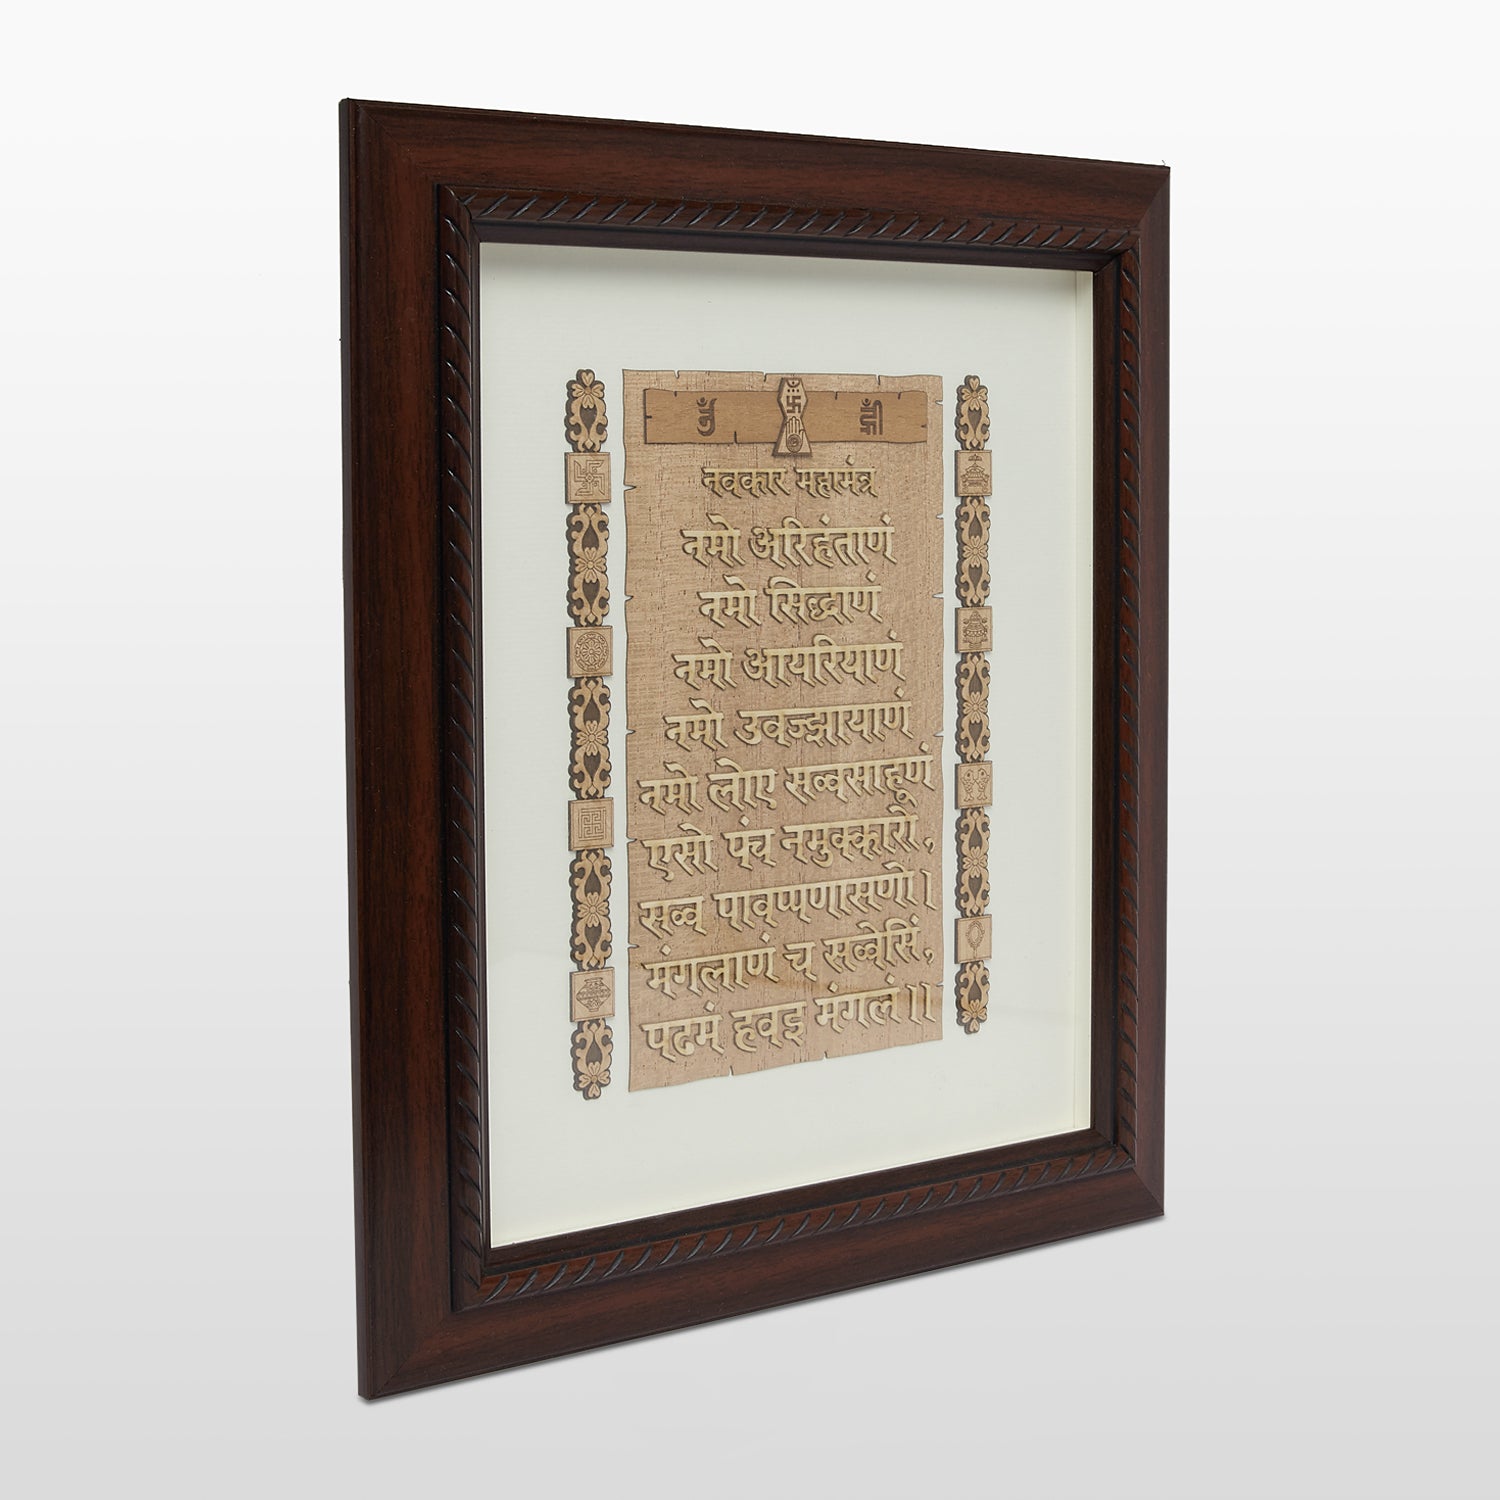 ॐ ह्रीं
नवकार महामंत्र
नमो अरिहंताणं
नमो सिद्धाणं
नमो आयरियाणं
नमो उवज्झायाणं
नमो लोए सव्वसाहूणं
एसो पंच नमुक्कारो,
सव्व पावप्पणासणो।
मंगलाणं च सव्वेसिं,
पढमं हवइ मंगलं।।